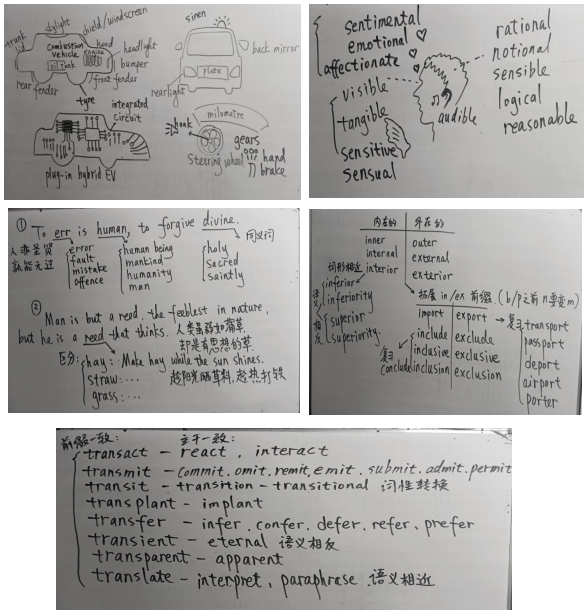 skylight
shield/windscreen
trunk
lid
Combustion
vehicle
engine
hood
oil tank
headlight
bumper
front fender
rear fender
tyre
integrated
circuit
plug-in hybrid EV
siren
back mirror
plate
rearlight
milometre
honk
gears
Steering wheel
hand
brake
sentimental
emotional
affectionate
visible
tangible
sensitive
sensual
audible
rational
notional
sensible
logical
reasonable
① To err is human, to forgive divine.
人非圣贤
孰能无过
error
fault
mistake
offence
human being
mankind
humanity
man
同义词
holy
sacred
saintly
②
Man is but a reed, the feeblest in nature,
but he is a reed that thinks. 人类虽弱如芦苇
却是有思想的草.
区分: hay: Make hay while the sun shines.
straw: ... 趁阳光晒草料, 趁热打铁
grass: ...
内在的 外在的
inner outer
internal external
interior exterior
词形相近
语义相反
inferior
inferiority
superior
superiority
拓展 in/ex 前缀 (b/p之前n要变m)
import export → 复习 transport
include exclude passport
inclusive exclusive deport
inclusion exclusion airport
porter
复习
conclude
前缀一致: 主干一致:
transact - react, interact
transmit - commit. omit. remit, emit. submit. admit. permit
transit - transition - transitional 词性转换
transplant - implant
transfer - infer. confer. defer. refer. prefer
transient - eternal 语义相反
transparent - apparent
translate - interpret, paraphrase 语义相近